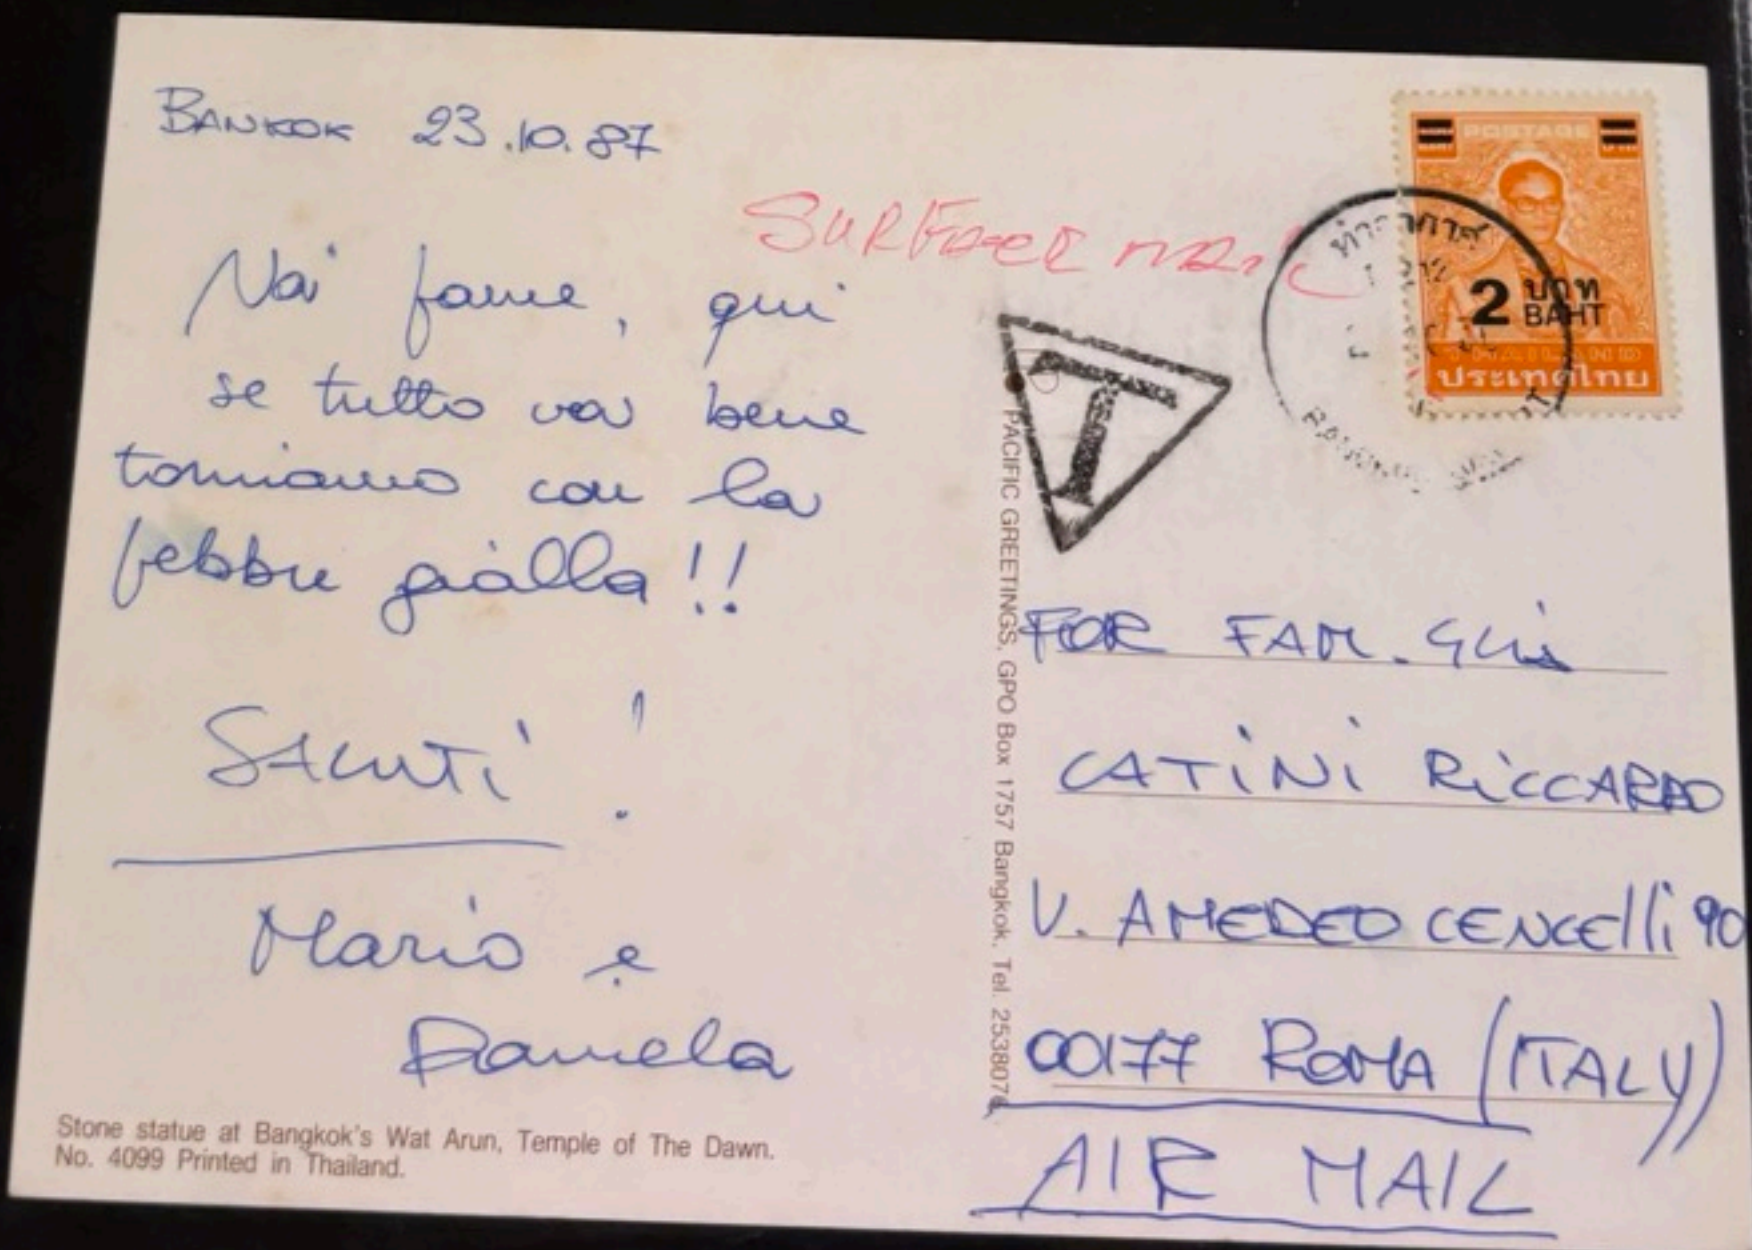 BANKOK 23.10.87
Noi fame, qui
se tutto va bene
torniamo con la
febbre gialla!!
SALUTI!
Mario e
Daniela
Stone statue at Bangkok's Wat Arun, Temple of The Dawn.
No. 4099 Printed in Thailand.
PACIFIC GREETINGS, GPO Box 1757 Bangkok, Tel. 2538076
SURFACE MAIL
T
POSTAGE
2 บาท
BAHT
THAILAND
ประเทศไทย
FOR FAM.GLIA
CATINI RICCARDO
V. AMEDEO CENCELLI 90
00177 ROMA (ITALY)
AIR MAIL